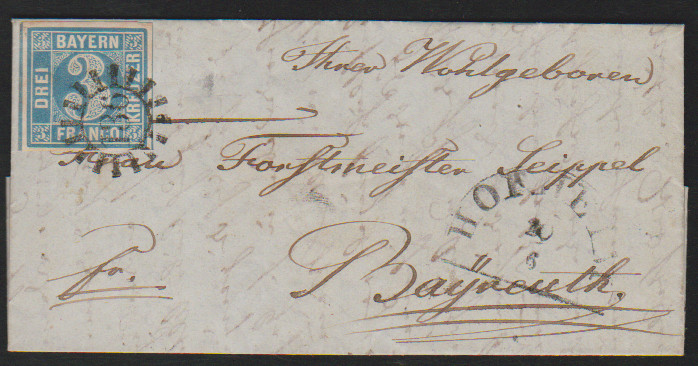 BAYERN
DREI
3
KREUZER
FRANCO
Ihrer Wohlgeboren
Frau Forstmeister Seippel
HOF
6
fr.
Bayreuth.